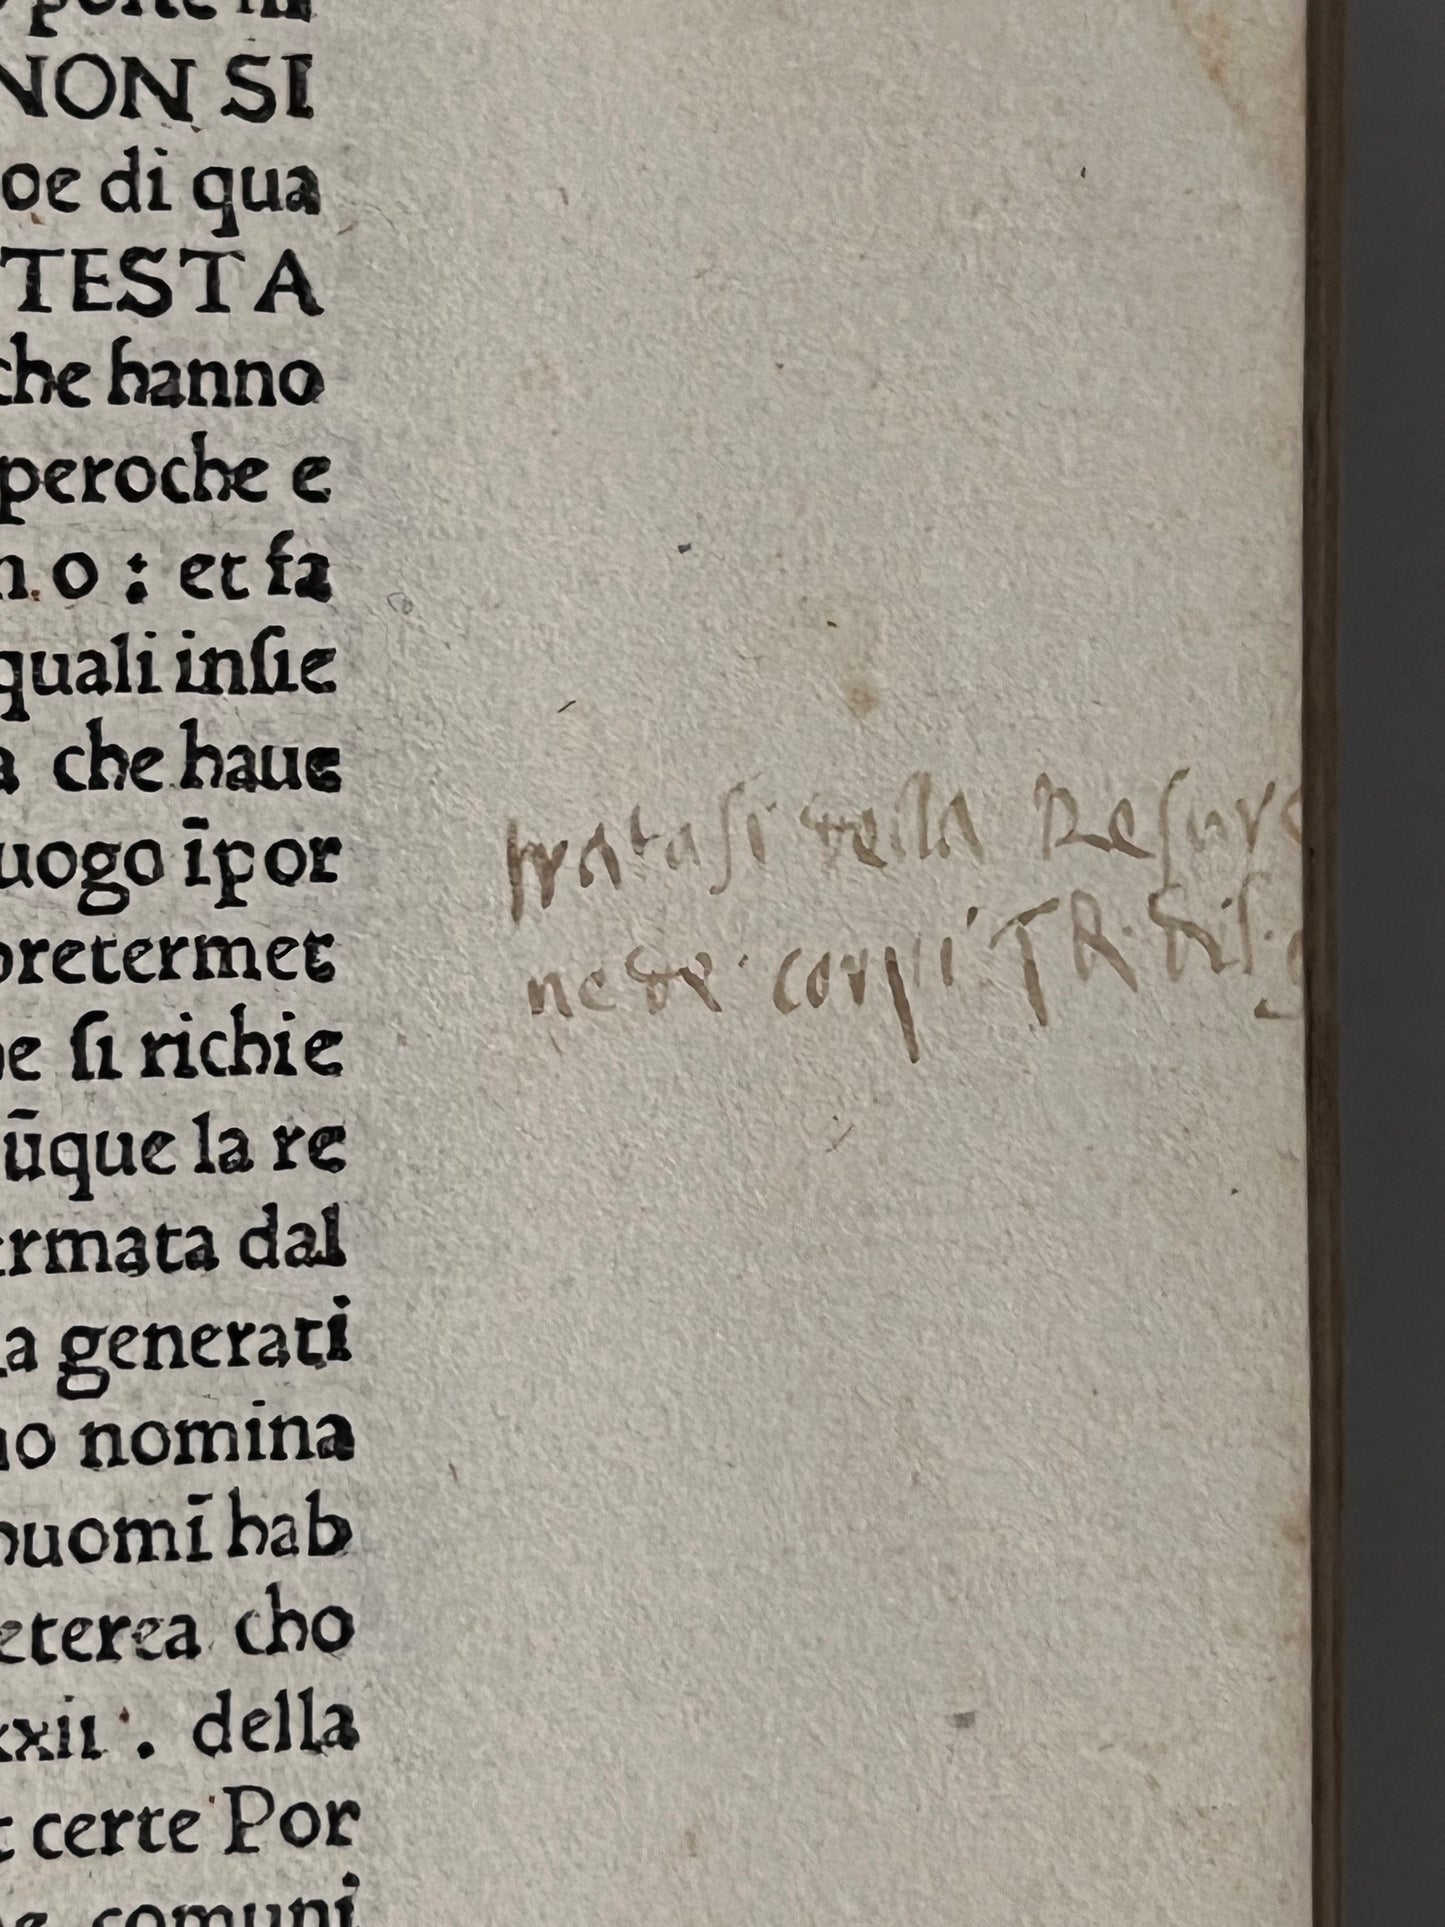 NON SI
oe di qua
TESTA
che hanno
peroche e
no : et fa
quali inſie
a che haue
uogo īpor
pretermet
he ſi richie
ūque la re
ermata dal
la generati
no nomina
huomī hab
eterea cho
xxii . della
t certe Por
comuni
trataſi della Reſurre
ne de corpi